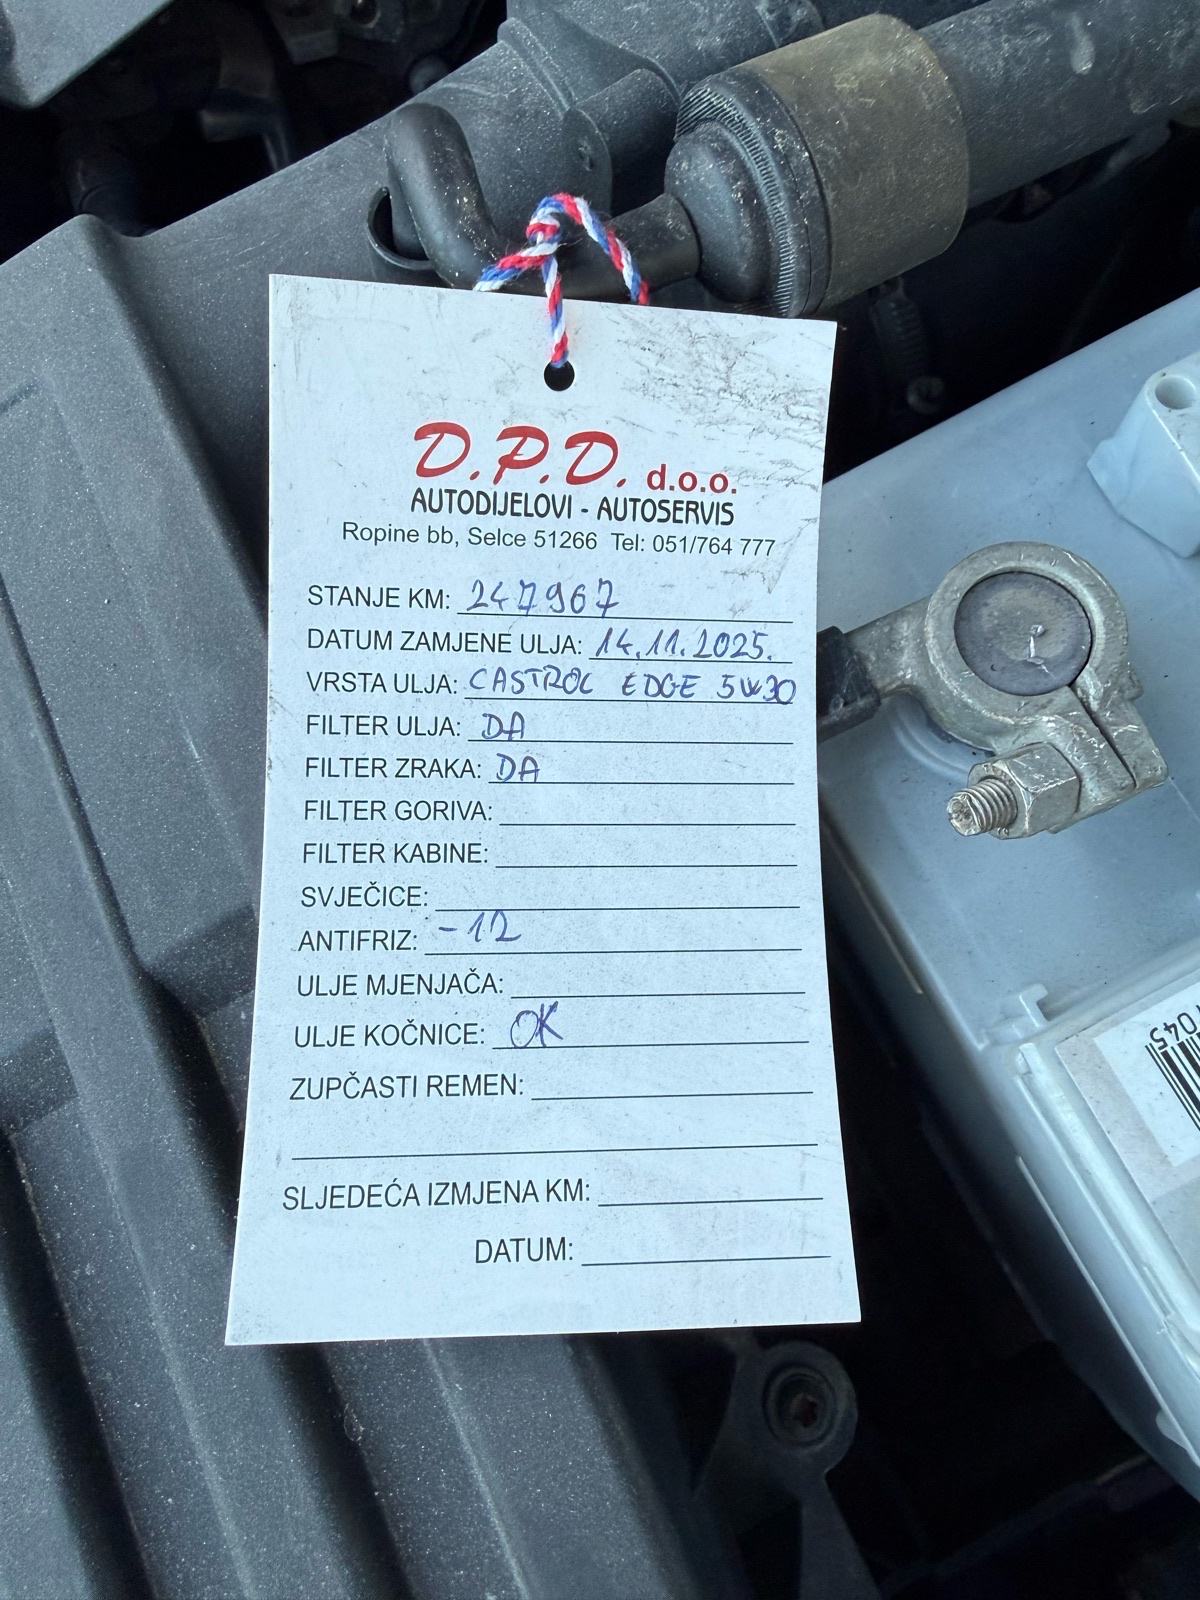 D.P.D. d.o.o.
AUTODIJELOVI - AUTOSERVIS
Ropine bb, Selce 51266 Tel: 051/764 777
STANJE KM: 247967
DATUM ZAMJENE ULJA: 14.11.2025.
VRSTA ULJA: CASTROL EDGE 5W30
FILTER ULJA: DA
FILTER ZRAKA: DA
FILTER GORIVA:
FILTER KABINE:
SVJEČICE:
ANTIFRIZ: -12
ULJE MJENJAČA:
ULJE KOČNICE: OK
ZUPČASTI REMEN:
SLJEDEĆA IZMJENA KM:
DATUM: